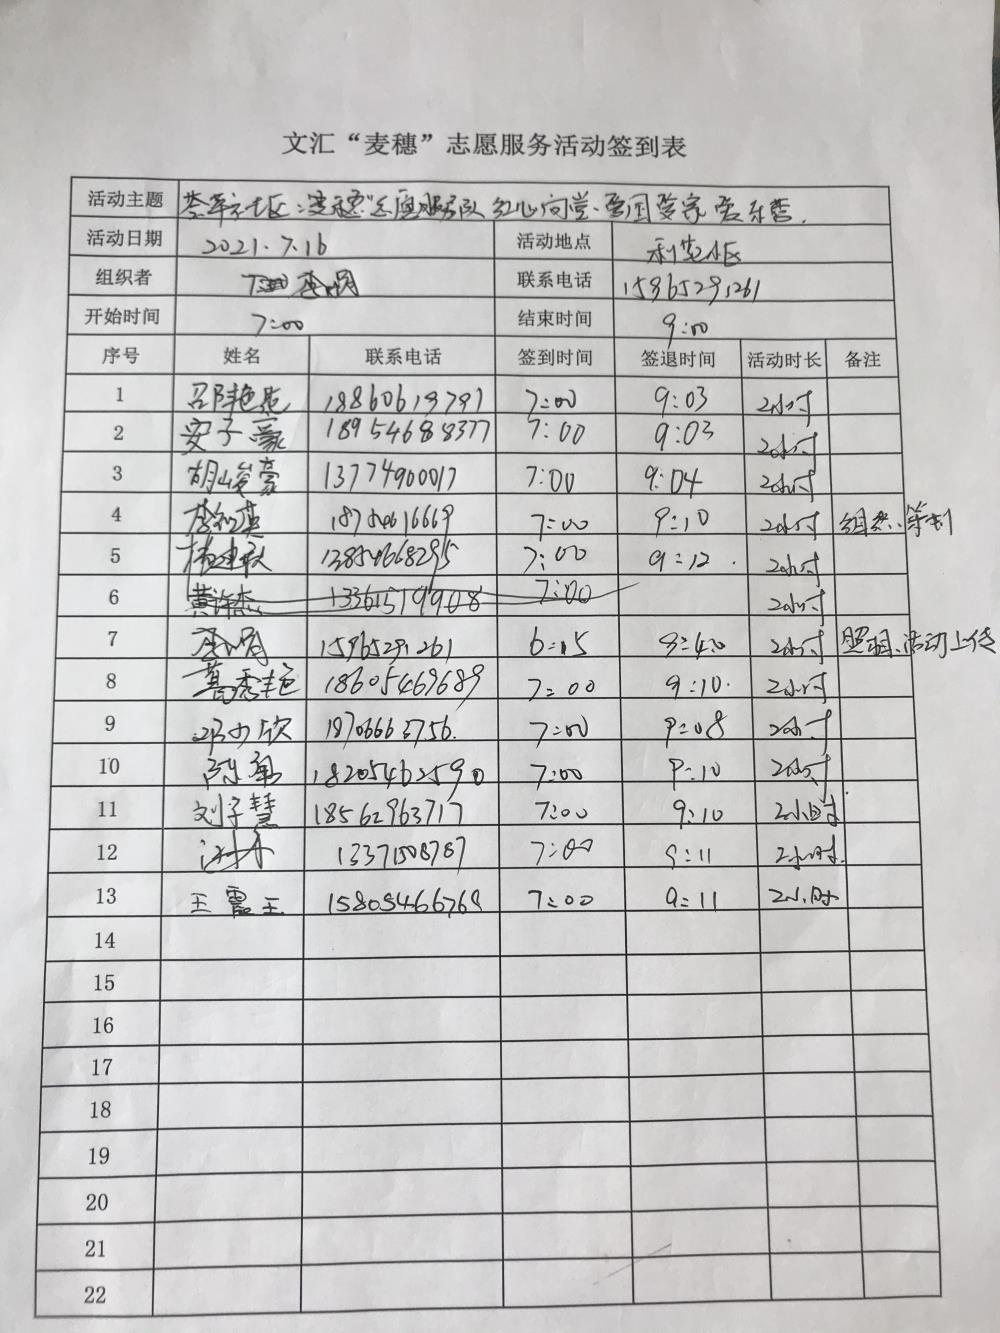 文汇“麦穗”志愿服务活动签到表
活动主题 社区 志愿服务队 红心向党·爱国爱家 爱东营.
活动日期 2021.7.16 活动地点 利 小区
组织者 联系电话 15965291261
开始时间 7:00 结束时间 9:00
序号 姓名 联系电话 签到时间 签退时间 活动时长 备注
1 邵艳 7:00 9:03 2小时
2 安子豪 18954688377 7:00 9:03 2小时
3 胡峻豪 13774900017 7:00 9:04 2小时
4 7:00 9:10 2小时 组织、筹划
5 7:00 9:12 2小时
6 黄 杰 13361519908 7:00 2小时
7 15965291261 6:15 2小时 照相、活动上传
8 葛秀艳 18605469689 7:00 9:10 2小时
9 邓 欣 7:00 9:08 2小时
10 陈 18205462590 7:00 9:10 2小时
11 刘子慧 18562963717 7:00 9:10 2小时
12 13371508787 7:00 9:11 2小时
13 王 玉 15805466768 7:00 9:11 2小时
14
15
16
17
18
19
20
21
22